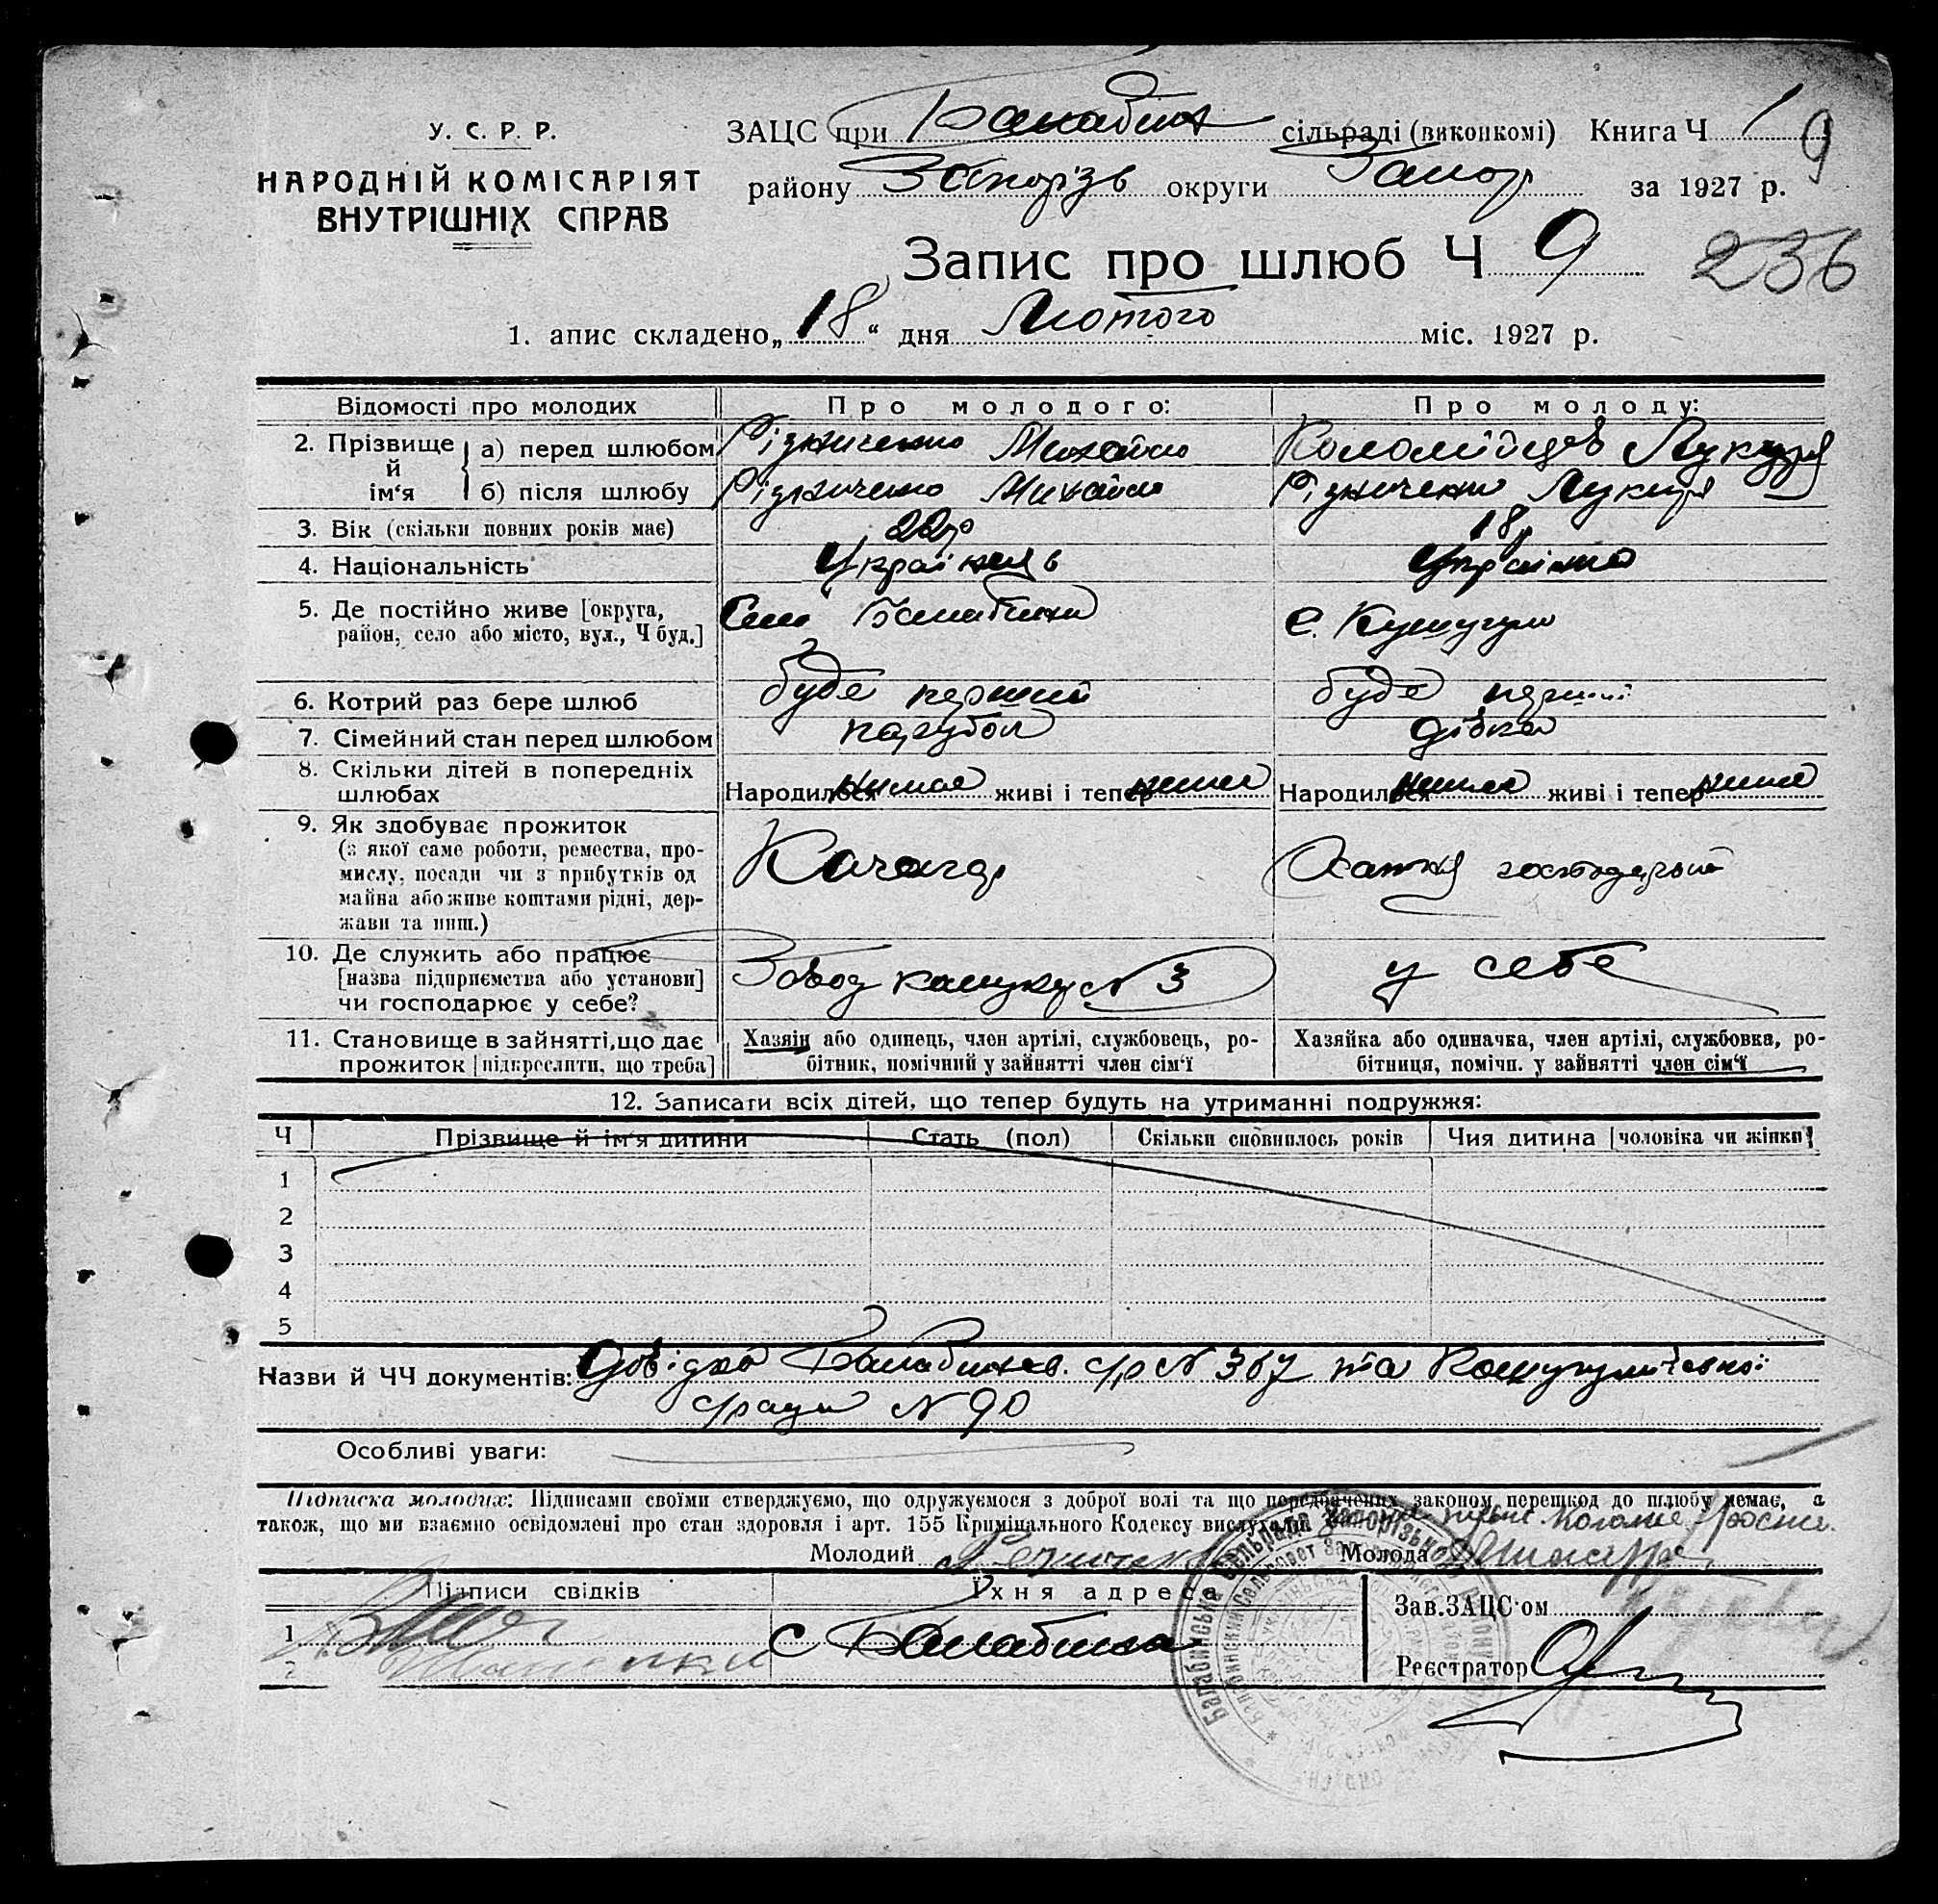 У. С. Р. Р.
НАРОДНІЙ КОМІСАРІЯТ
ВНУТРІШНІХ СПРАВ
ЗАЦС при Балабин сільраді (виконкомі) Книга Ч 1
9
району Запорізь округи Запор за 1927 р.
Запис про шлюб Ч 9
236
1. апис складено „18“ дня Лютого міс. 1927 р.
Відомості про молодих Про молодого: Про молоду:
2. Прізвище й ім'я а) перед шлюбом Різниченко Михайло Коломійцев Лукерія
б) після шлюбу Різниченко Михайло Різниченко Лукерія
3. Вік (скільки повних років має) 22р 18р
4. Національність Українець Українка
5. Де постійно живе [округа, район, село або місто, вул., Ч буд.] Село Балабине с. Кушугум
6. Котрий раз бере шлюб буде перший буде перший
7. Сімейний стан перед шлюбом парубок дівка
8. Скільки дітей в попередніх шлюбах Народилося нимає живі і тепер нима Народилося нима живі і тепер нима
9. Як здобуває прожиток Кочегар Хатня господарка
(з якої саме роботи, ремества, про-
мислу, посади чи з прибутків од
майна або живе коштами рідні, дер-
жави та инш.)
10. Де служить або працює [назва підприємства або установи] чи господарює у себе? Завод № 3 у себе
11. Становище в зайнятті, що дає прожиток [підкреслити, що треба]
Хазяїн або одинець, член артілі, службовець, ро-
бітник, помічний у зайнятті член сім'ї
Хазяйка або одиначка, член артілі, службовка, ро-
бітниця, помічн. у зайнятті член сім'ї
12. Записати всіх дітей, що тепер будуть на утриманні подружжя:
Ч Прізвище й ім'я дитини Стать (пол) Скільки сповнилось років Чия дитина [чоловіка чи жінки]
1
2
3
4
5
Назви й ЧЧ документів: Довідка Балабинсв. с/р № 367 та Кошугумівської
с/ради № 90
Особливі уваги:
Підписка молодих: Підписами своїми стверджуємо, що одружуємося з доброї волі та що передбачених законом перешкод до шлюбу немає, а
також, що ми взаємно освідомлені про стан здоровля і арт. 155 Кримінального Кодексу вислухали
Молодий Молода
Підписи свідків Їхня адреса
Зав. ЗАЦС'ом
1 с Балабина
2
Реєстратор
Балабинська Сельрада Запорізького району